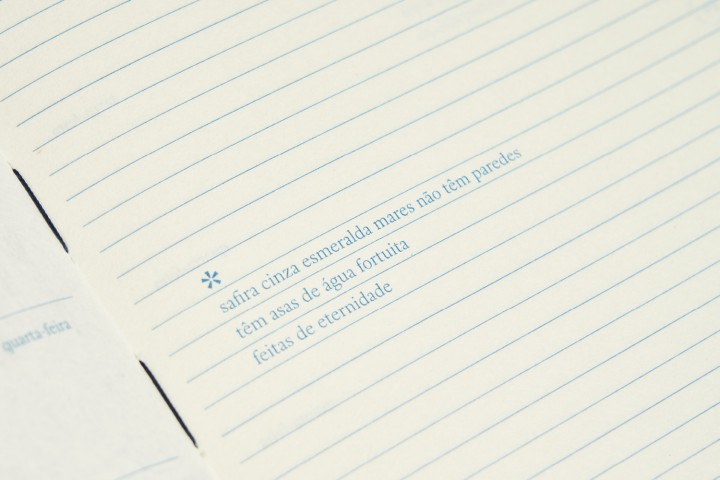 * safira cinza esmeralda mares não têm paredes
têm asas de água fortuita
feitas de eternidade
quarta-feira